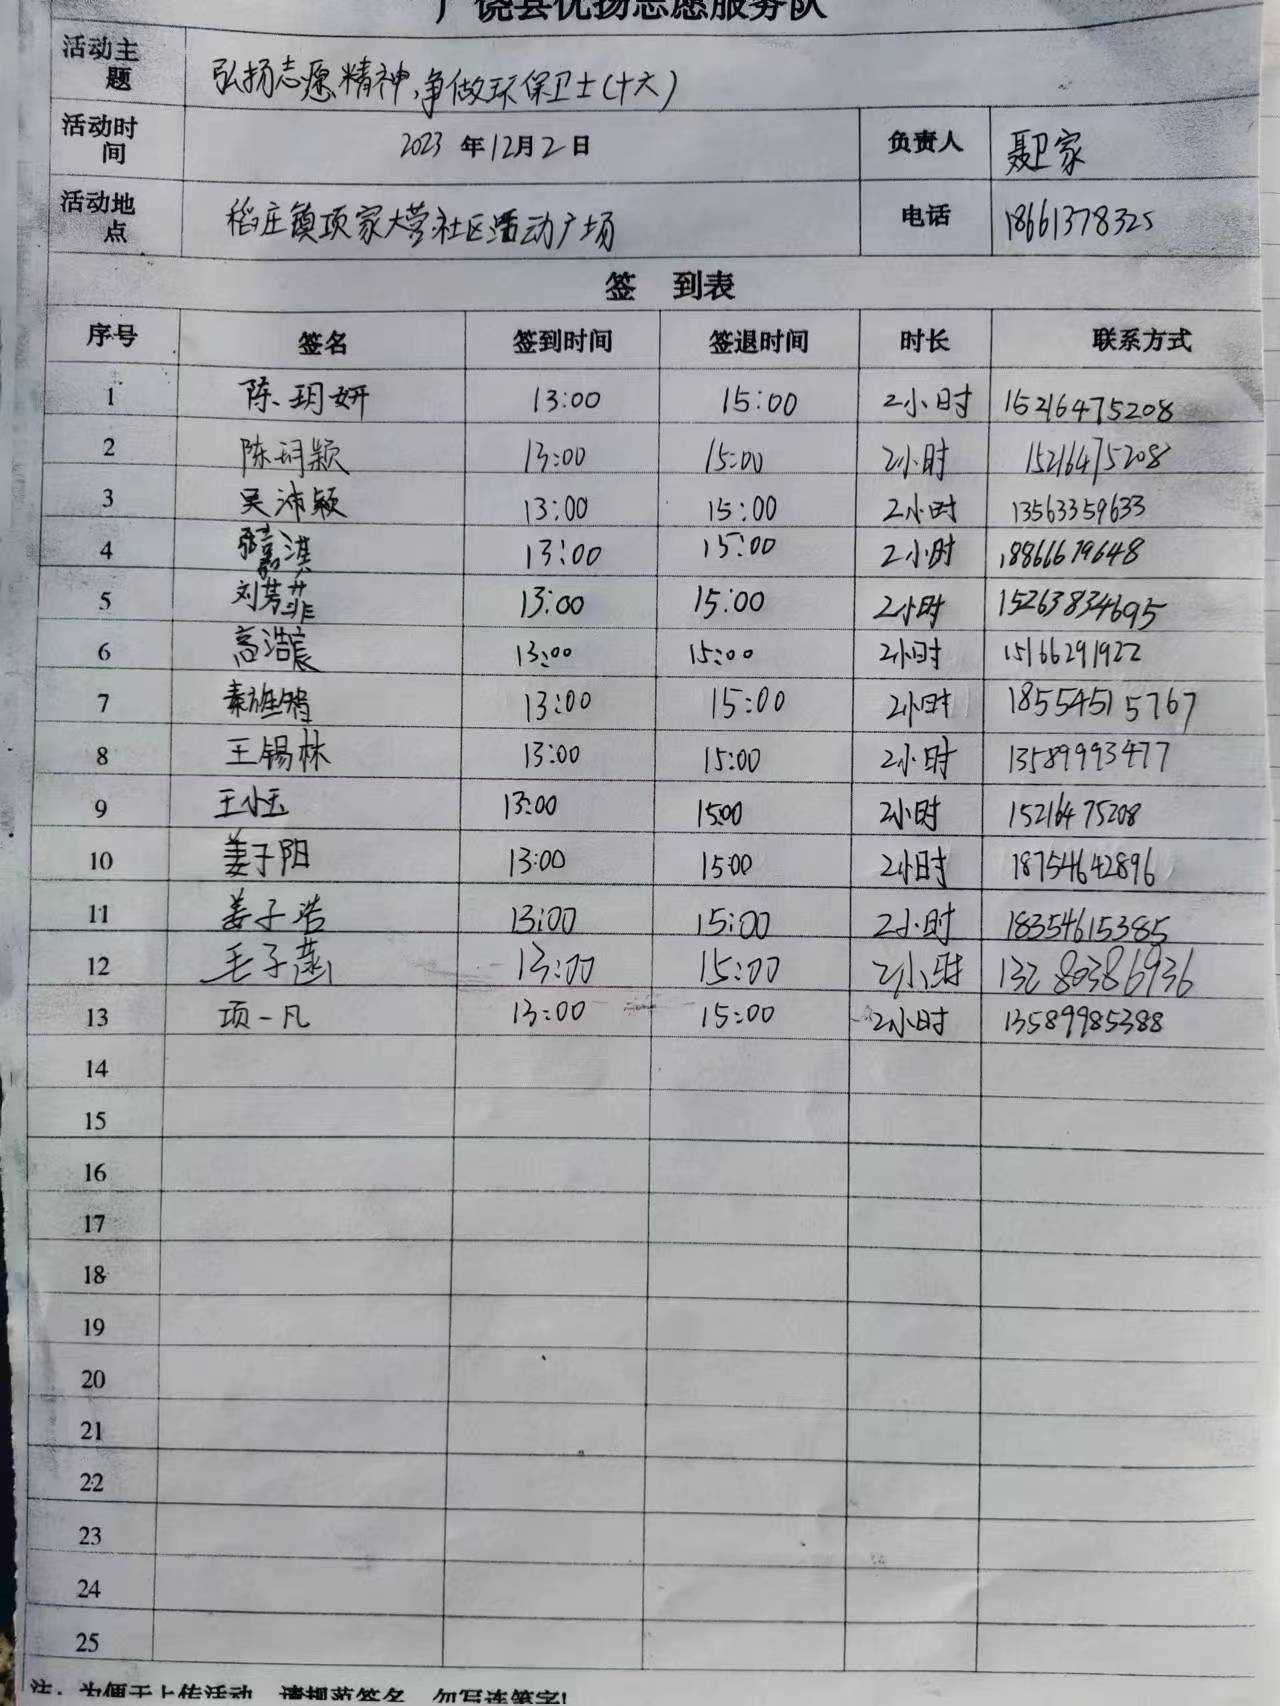 广饶县优扬志愿服务队
活动主题 弘扬志愿精神,争做环保卫士(十六)
活动时间 2023 年12月2日 负责人 聂卫家
活动地点 稻庄镇项家大营社区活动广场 电话 18661378325
签 到表
序号 签名 签到时间 签退时间 时长 联系方式
1 陈玥妍 13:00 15:00 2小时 15216475208
2 陈玥颖 13:00 15:00 2小时 15216475208
3 吴沛颖 13:00 15:00 2小时 13563359633
4 淇 13:00 15:00 2小时 18866679648
5 刘芳菲 13:00 15:00 2小时 15263834695
6 高浩宸 13:00 15:00 2小时 15166291922
7 13:00 15:00 2小时 18554515767
8 王锡林 13:00 15:00 2小时 13589993477
9 王小玉 13:00 15:00 2小时 15216475208
10 姜子阳 13:00 15:00 2小时 18754642896
11 姜子浩 13:00 15:00 2小时 18354615385
12 毛子菡 13:00 15:00 2小时 13280386936
13 项一凡 13:00 15:00 2小时 13589985388
14
15
16
17
18
19
20
21
22
23
24
25
注:为便于上传活动,请规范签名,勿写连笔字!